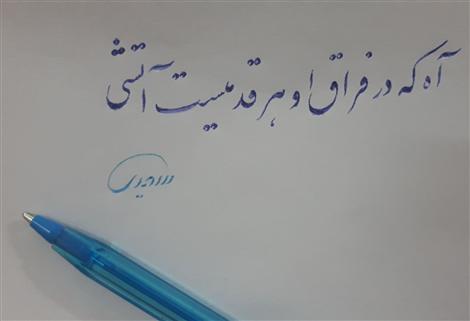 آه که در فراق او هر قدمیست آتشی